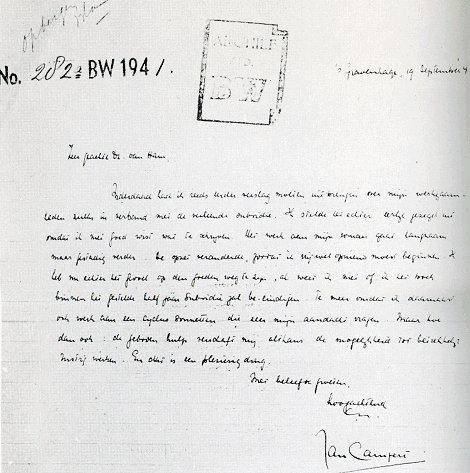 opbergen
No. 282 2 BW 1941.
ARCHIEF
BW
's Gravenhage, 19 September 4
Zeer geachte Dr. van Ham,
Inderdaad had ik reeds eerder verslag moeten uitbrengen over mijn werkzaam-
heden zulks in verband met de verleende subsidie. Ik stelde het echter eerlijk gezegd uit
omdat ik niet goed wist wat te schrijven. Het werk aan mijn roman gaat langzaam
maar gestadig verder. De opzet veranderde, zoodat ik vrijwel opnieuw moest beginnen. Ik
heb nu echter het gevoel op den goeden weg te zijn, al weet ik niet of ik het boek
binnen het gestelde half jaar subsidie zal beëindigen. Te meer omdat ik daarnaast
ook werk aan een cyclus sonnetten die veel mijn aandacht vragen. Maar hoe
dan ook: de geboden hulp verschaft mij althans de mogelijkheid tot betrekkelijk
rustig werken. En dat is een plezierig ding.
Met beleefde groeten,
hoogachtend
Jan Campert